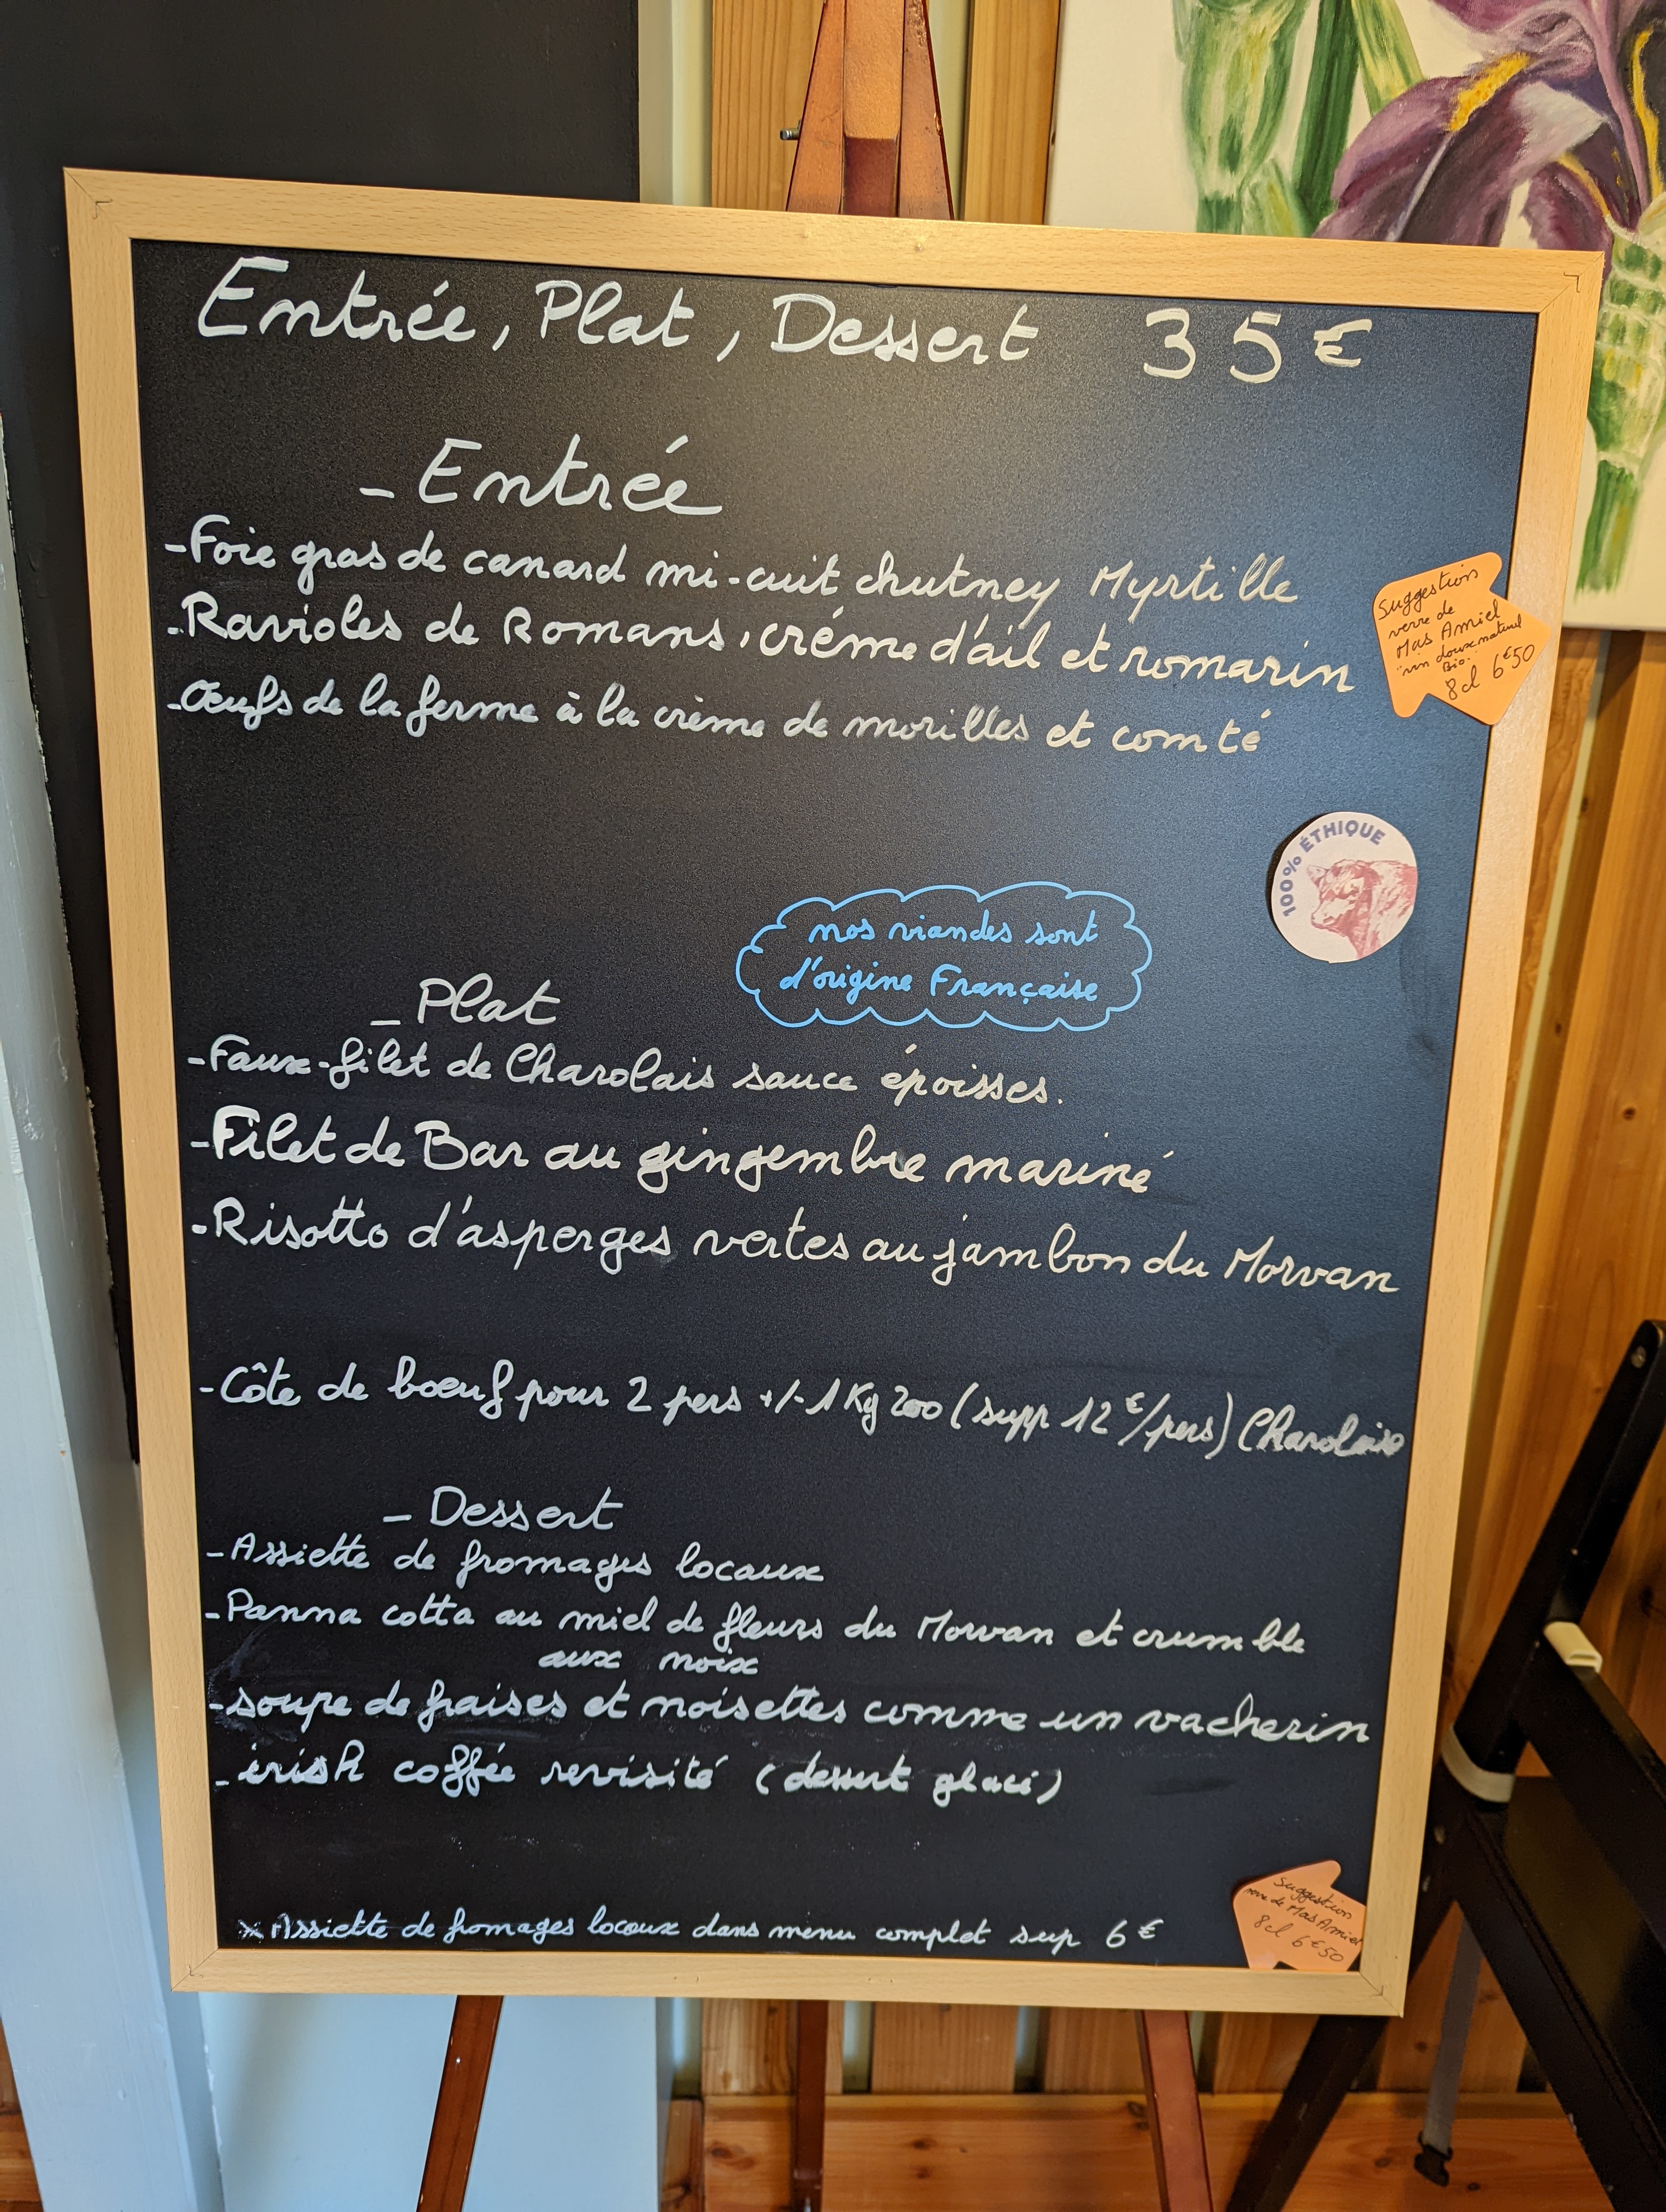 Entrée, Plat, Dessert 35€
- Entrée
- Foie gras de canard mi-cuit chutney Myrtille
- Ravioles de Romans, créme d'ail et romarin
- Œufs de la ferme à la crème de morilles et comté
Suggestion
verre de
Mas Amiel
vin doux naturel
Bio.
8cl 6€50
100% ÉTHIQUE
nos viandes sont
d'origine Française
- Plat
- Faux-filet de Charolais sauce époisses.
- Filet de Bar au gingembre mariné
- Risotto d'asperges vertes au jambon du Morvan
- Côte de bœuf pour 2 pers +/- 1Kg200 (supp 12€/pers) Charolaise
- Dessert
- Assiette de fromages locaux
- Panna cotta au miel de fleurs du Morvan et crumble
aux noix
- soupe de fraises et noisettes comme un vacherin
- irish coffée revisité (dessert glacé)
* Assiette de fromages locaux dans menu complet sup 6€
Suggestion
verre de Mas Amiel
8cl 6€50